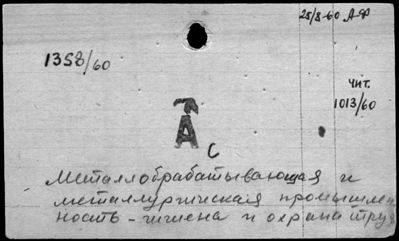 25/8-60 А-Ф
1358/60
Чит.
1013/60
А
С
Металлобрабатывающая и
металлургическая промышлен
ность - гигиена и охрана труд